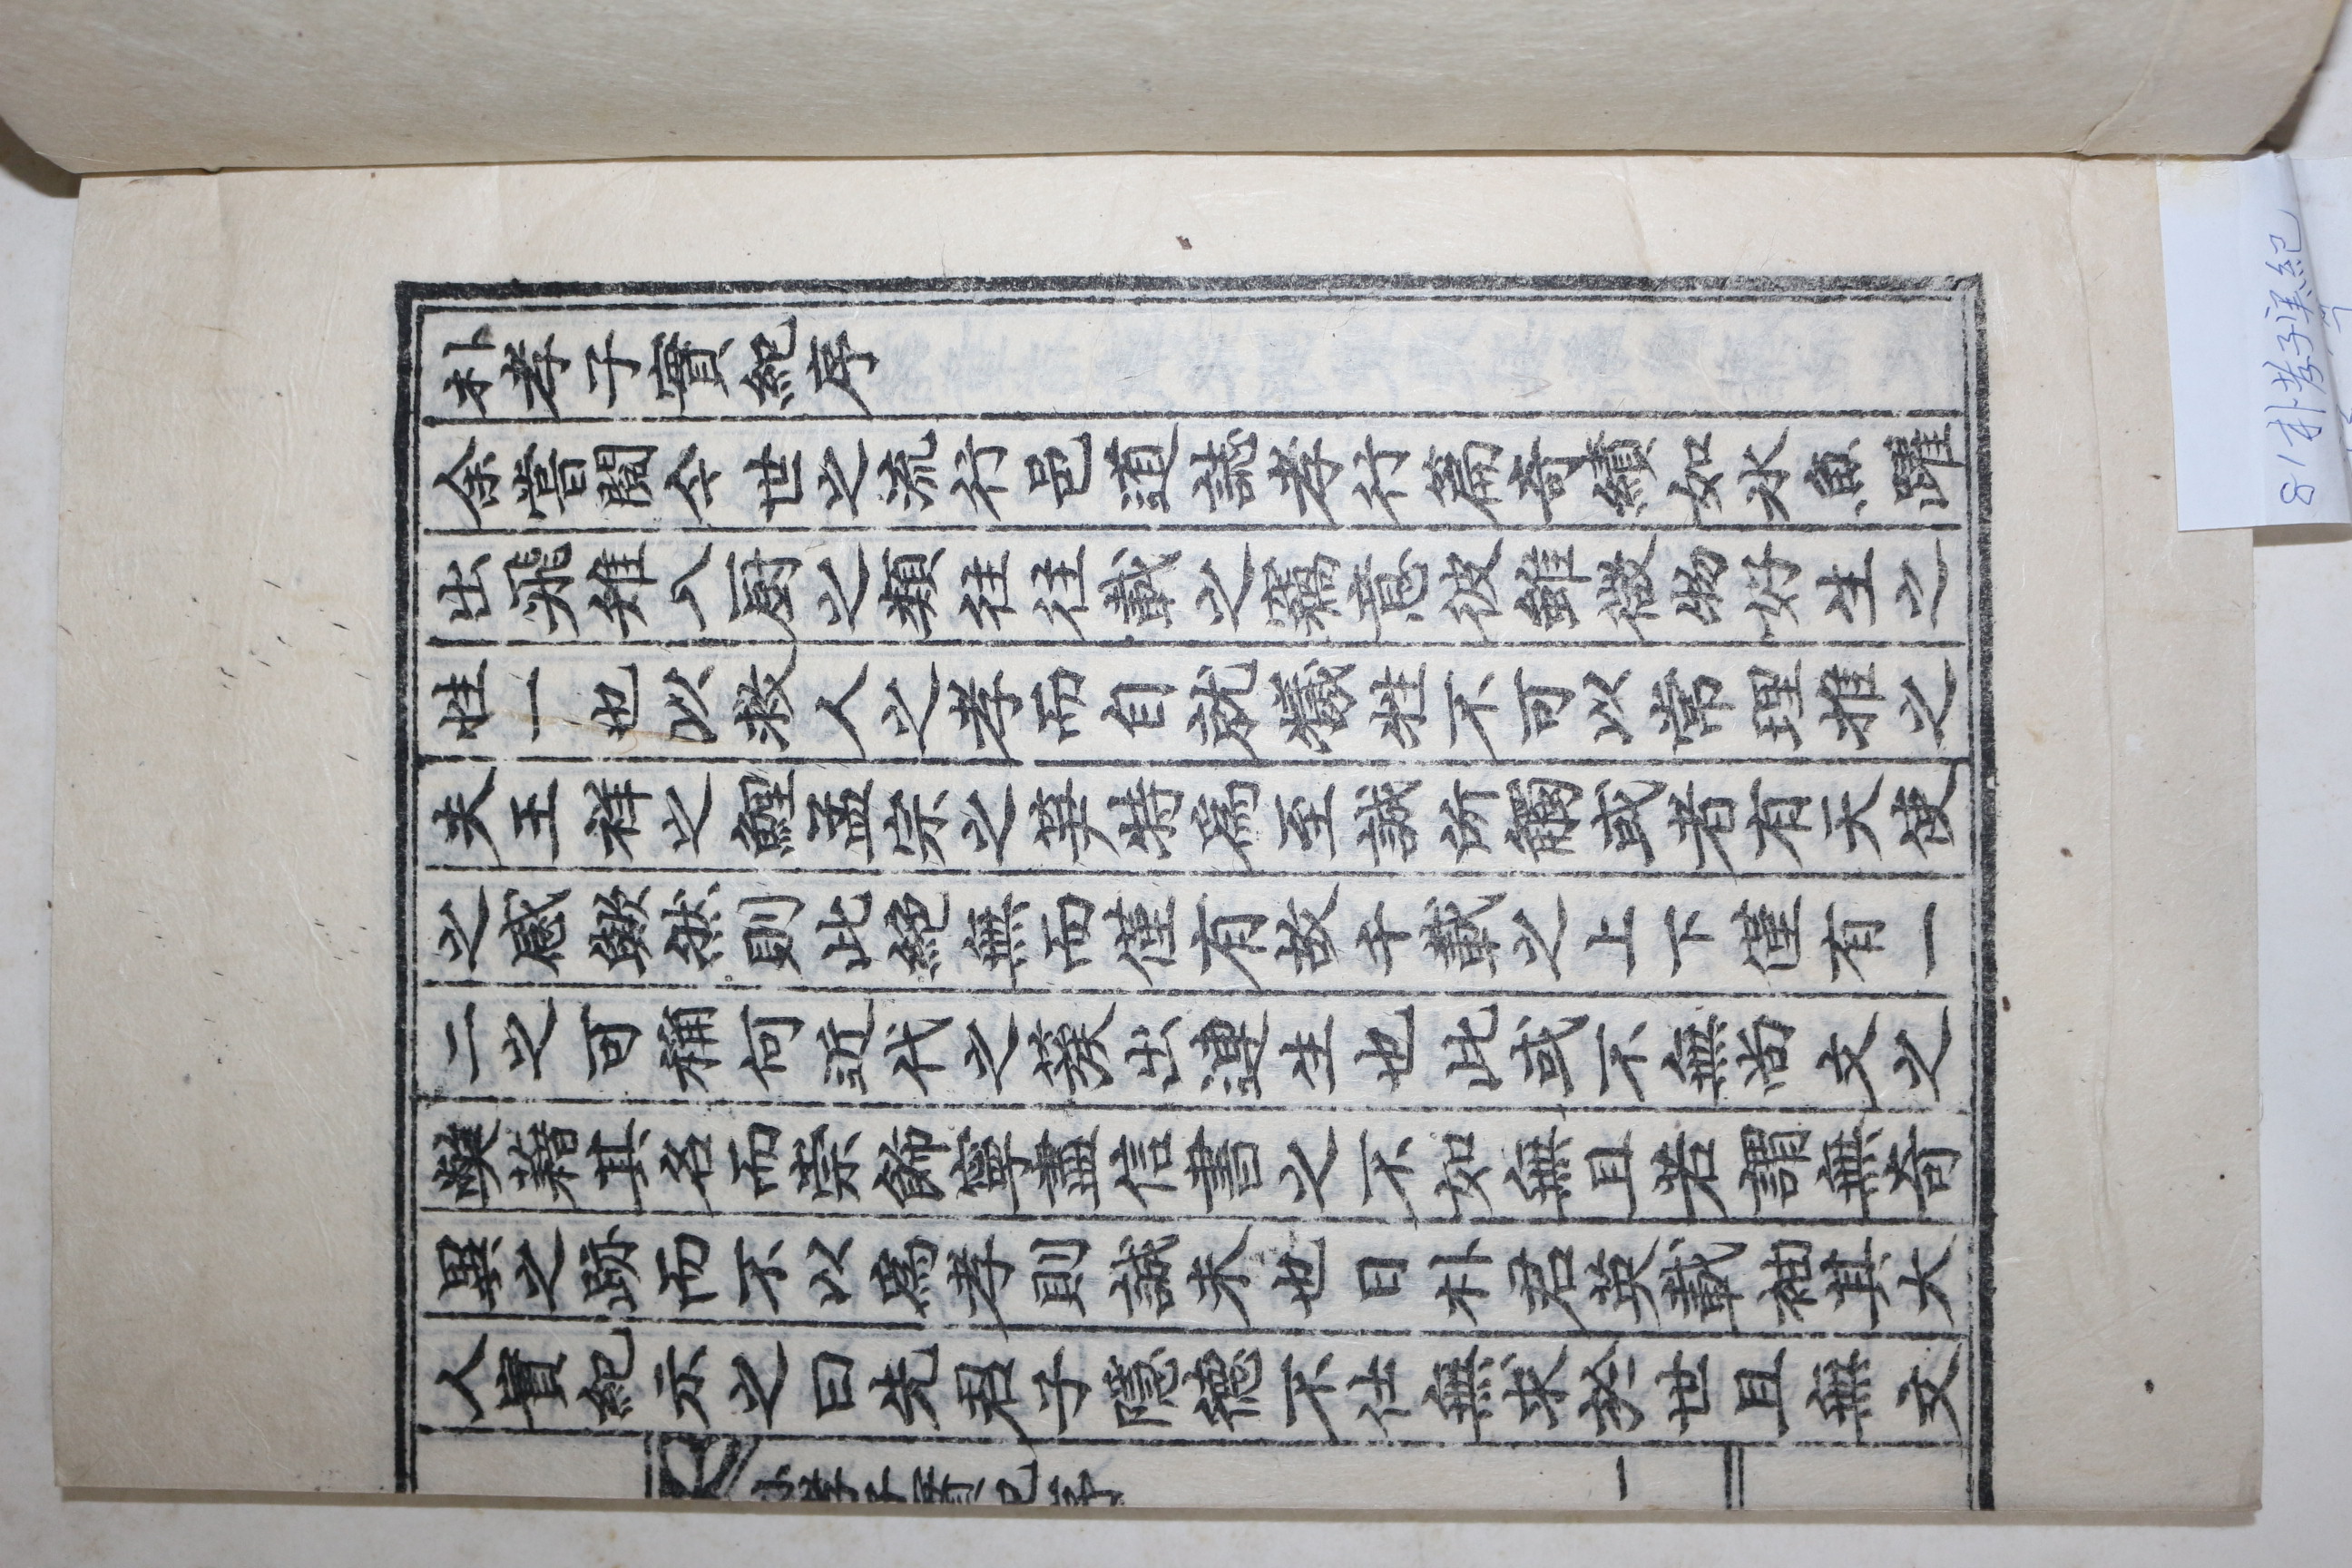 朴孝子實紀序
余嘗閱今世之流行邑道誌孝行篇奇績如氷魚躍
出飛雉入厨之類往往載之竊意彼雖微物好生之
性一也以救人之孝而自就犧牲不可以常理推之
夫王祥之鯉孟宗之笋特爲至誠所觸或者有天使
之感歟然則此絶無而僅有故千載之上下僅有一
二之可稱何近代之葠出連生也此或不無尚文之
弊藉其名而崇飾寧盡信書之不如無且若謂無奇
異之跡而不以爲孝則誠未也日朴君英載袖其大
人實紀示之曰先君子隱德不仕無求於世且無文
朴孝子實紀序
一
81朴孝子実紀